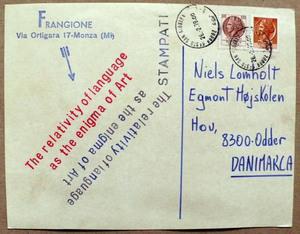 FRANGIONE
Via Ortigara 17-Monza (Mi)
STAMPATI
The relativity of language
as the enigma of Art
The relativity of language
as the enigma of Art
Niels Lomholt
Egmont Højskolen
Hov,
8300-Odder
DANIMARCA